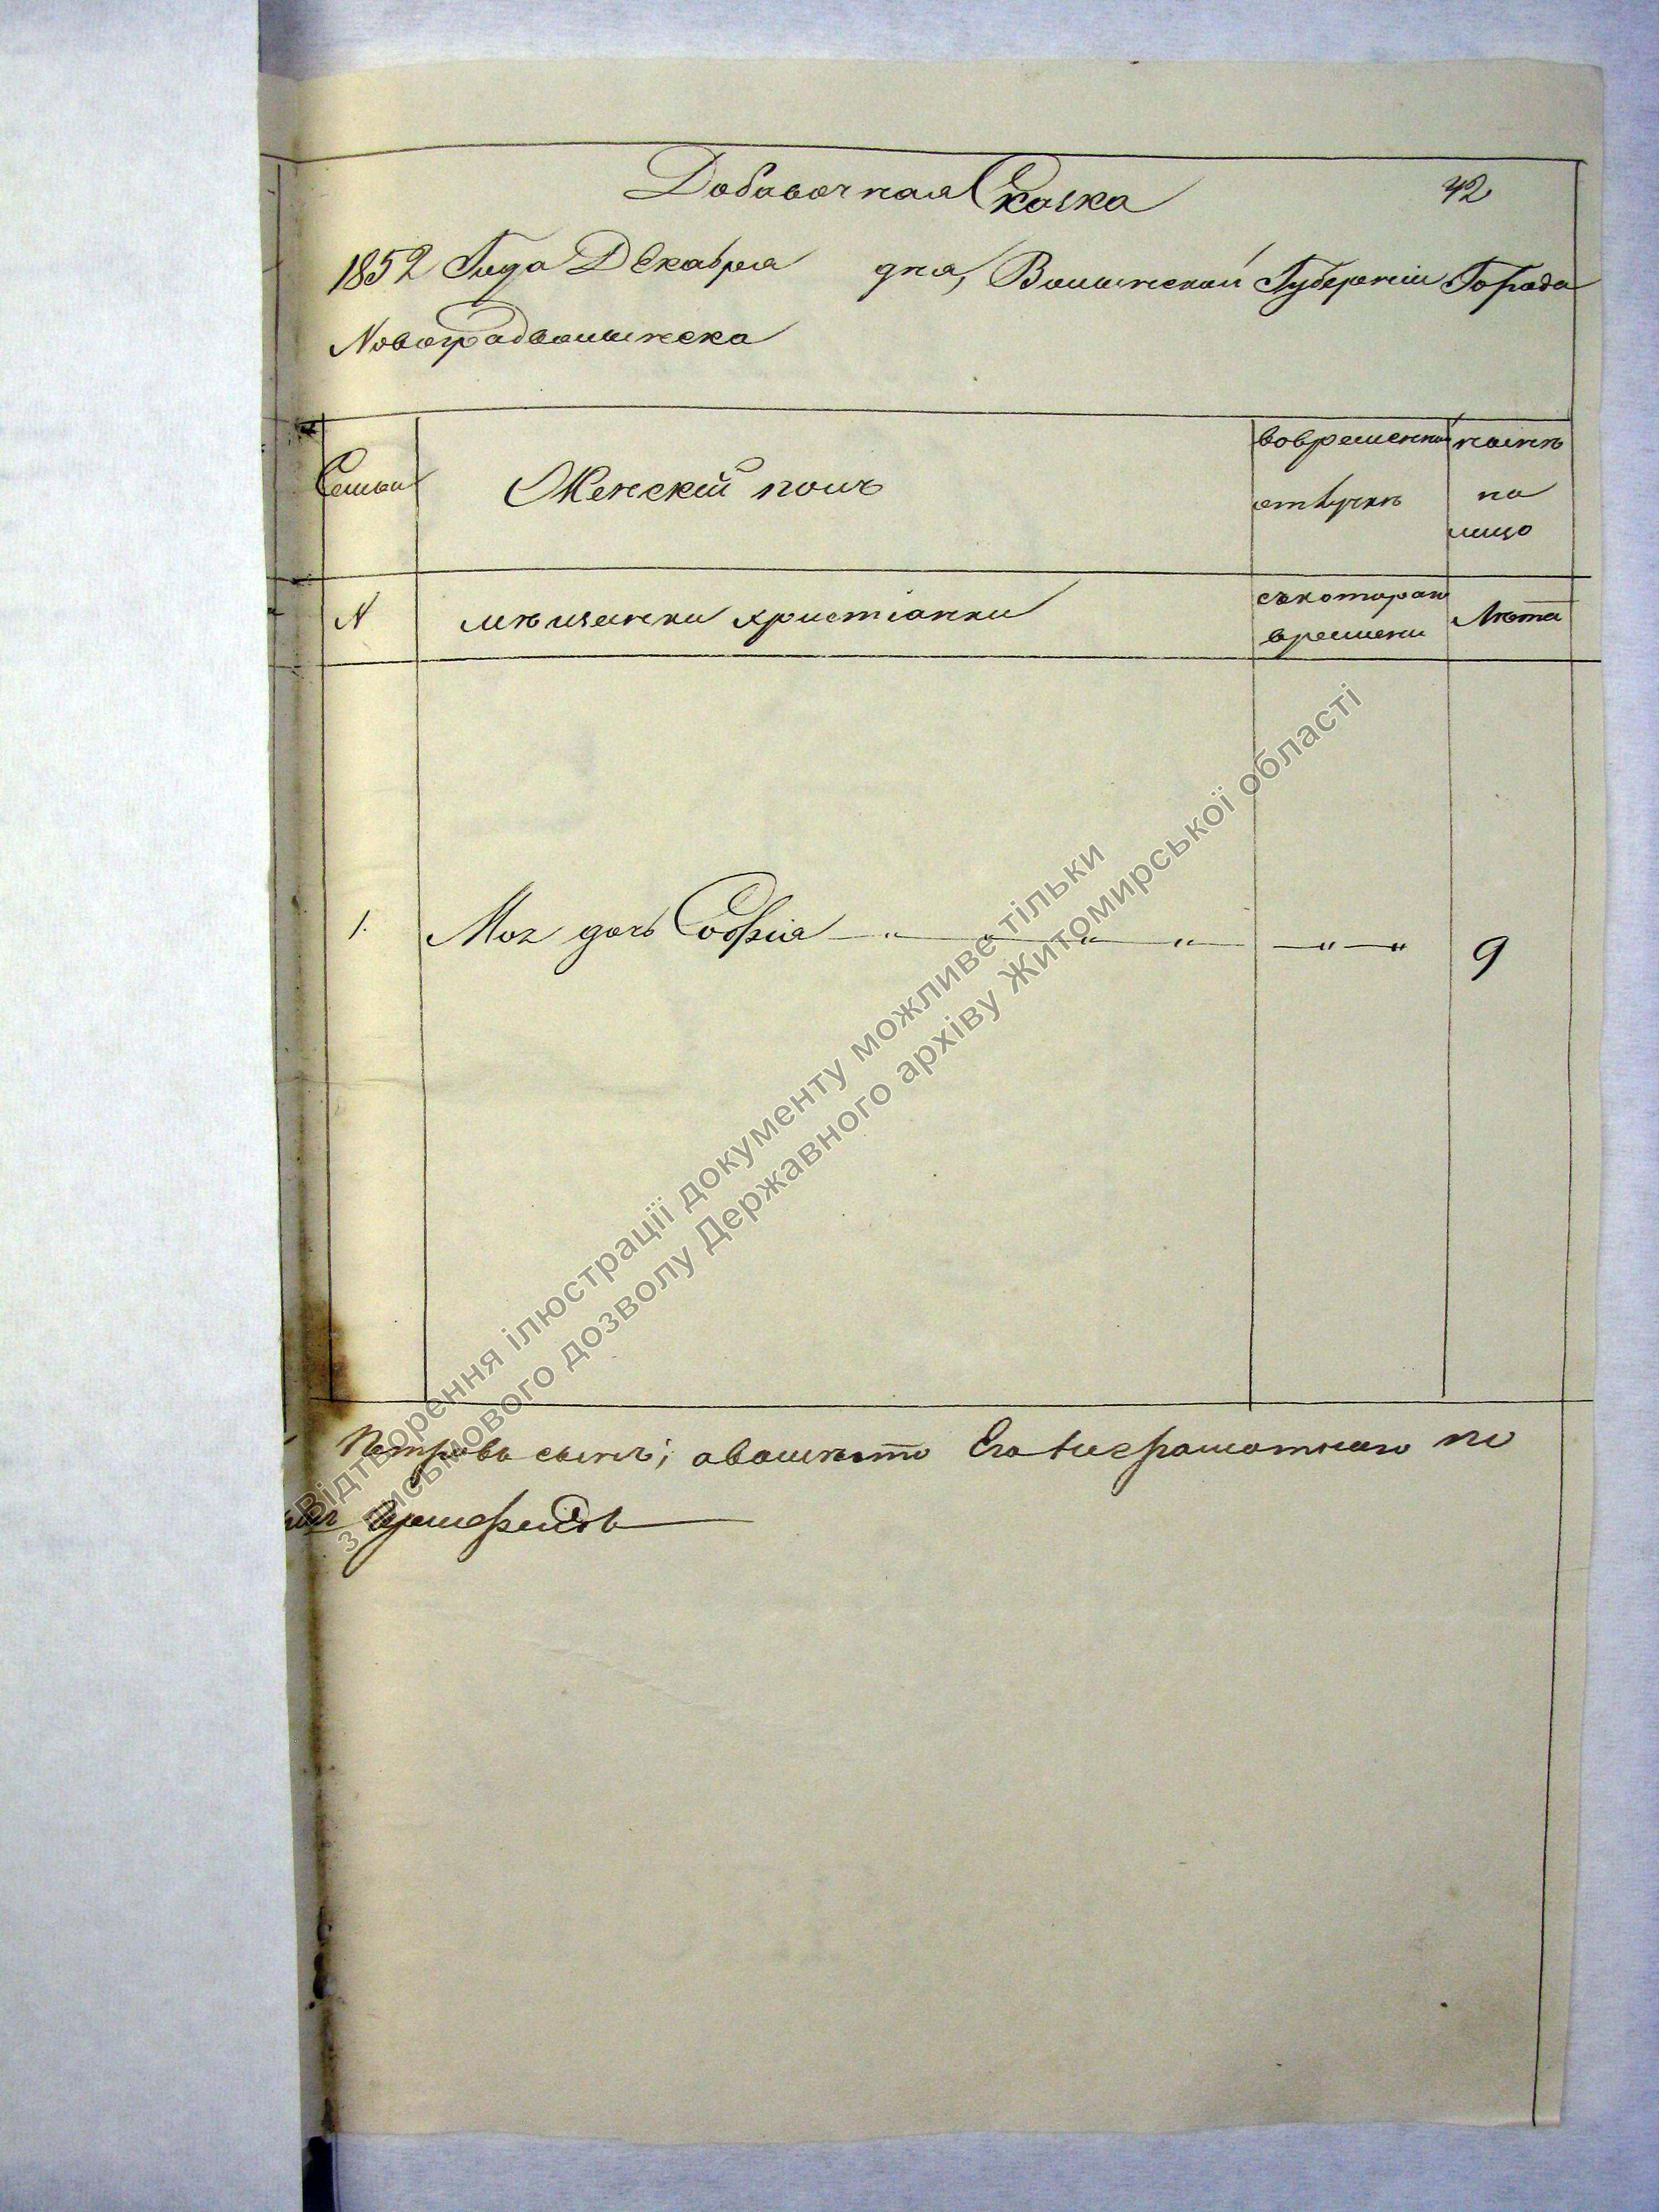 Добавочная Сказка 42
1852 Года Декабря дня, Волынской Губерніи Города
Новоградволынска
Семьи
Женскій полъ
вовременной
отлучкѣ
нынѣ
на
лицо
N
мѣщанки христіанки
съкотораго
времени
Лѣта
1. Моя дочь Софія — „ — „ — „ — „ — — „ — „ 9
Петровъ сынъ; авомѣсто Его неграмотнаго по
Відтворення ілюстрації документу можливе тільки
з письмового дозволу Державного архіву Житомирської області